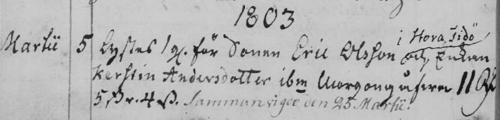 1803
Martii 5 Lystes 1 g. för Sonen Eric Olsson i Stora Sidö och Enkan
Kerstin Andersdotter ibm Morgongåfwan 11
5 Pr. 4 ß. Sammanvigde den 25 Martii.